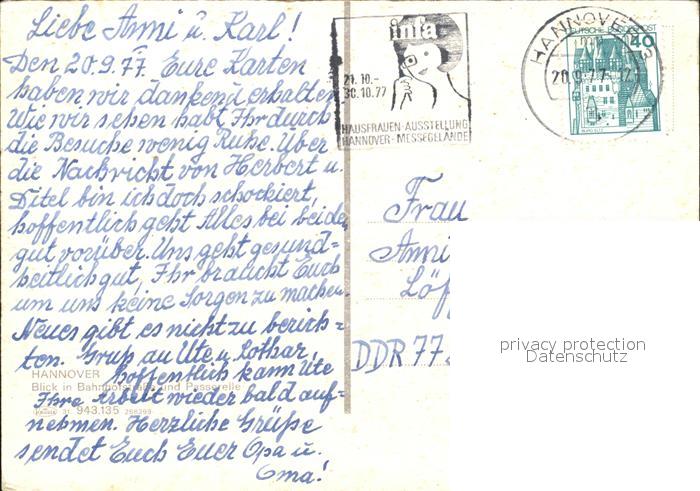 Liebe Anni u. Karl!
Den 20.9.77. Eure Karten
haben wir dankend erhalten
Wie wir sehen habt Ihr durch
die Besuche wenig Ruhe. Über
die Nachricht von Herbert u.
Titel bin ich doch schockiert,
hoffentlich geht Alles bei beiden
gut vorüber. Uns geht gesund=
heitlich gut, Ihr braucht Euch
um uns keine Sorgen zu machen.
Neues gibt es nicht zu berich=
ten. Gruß an Ute u. Lothar,
hoffentlich kann Ute
Ihre Arbeit wieder bald auf=
nehmen. Herzliche Grüße
sendet Euch Euer Opa u.
Oma!
HANNOVER
Blick in Bahnhofstraße und Passerelle
31. 943.135 268299
infa
21.10.-
30.10.77
HAUSFRAUEN-AUSSTELLUNG
HANNOVER-MESSEGELÄNDE
HANNOVER
20.9.77
DEUTSCHE BUNDESPOST
40
BURG ELTZ
Frau
Anni
Löf
DDR 77
privacy protection
Datenschutz